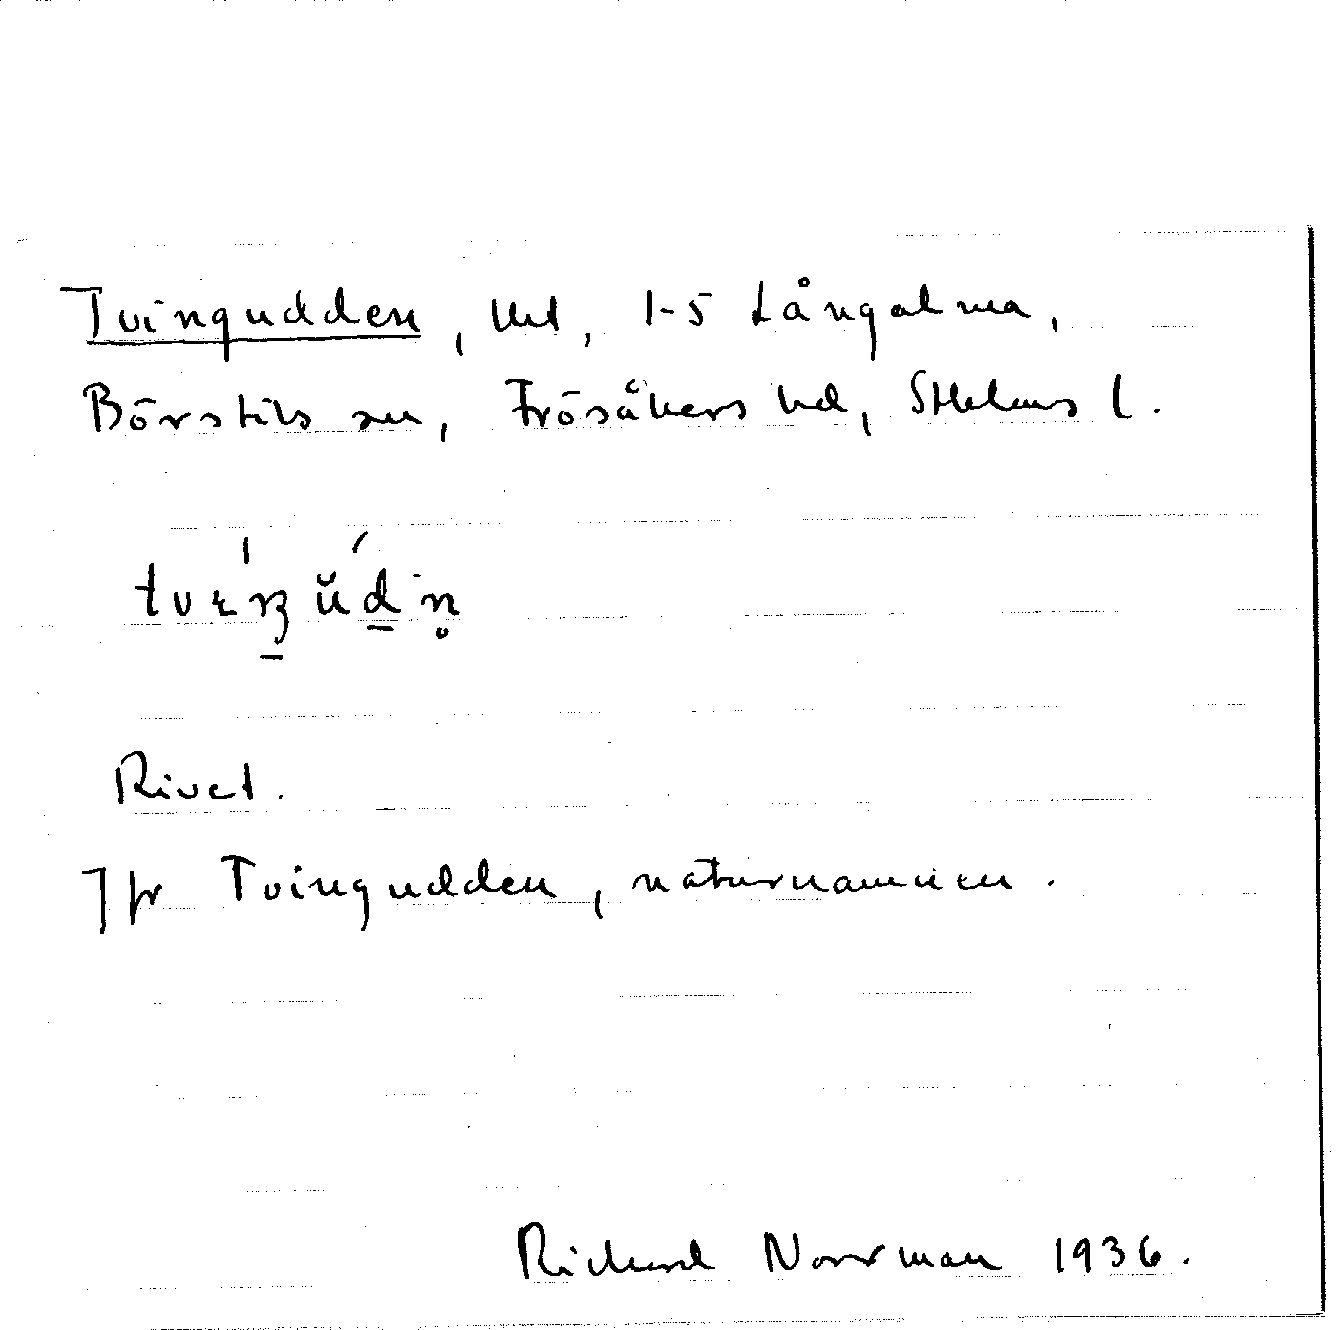 Tvingudden, tht, 1-5 Långalma,
Börstils sn, Frösåkers hd, Sthlms l.
Rivet.
Jfr Tvingudden, naturnamnen.
Richard Norrman 1936.